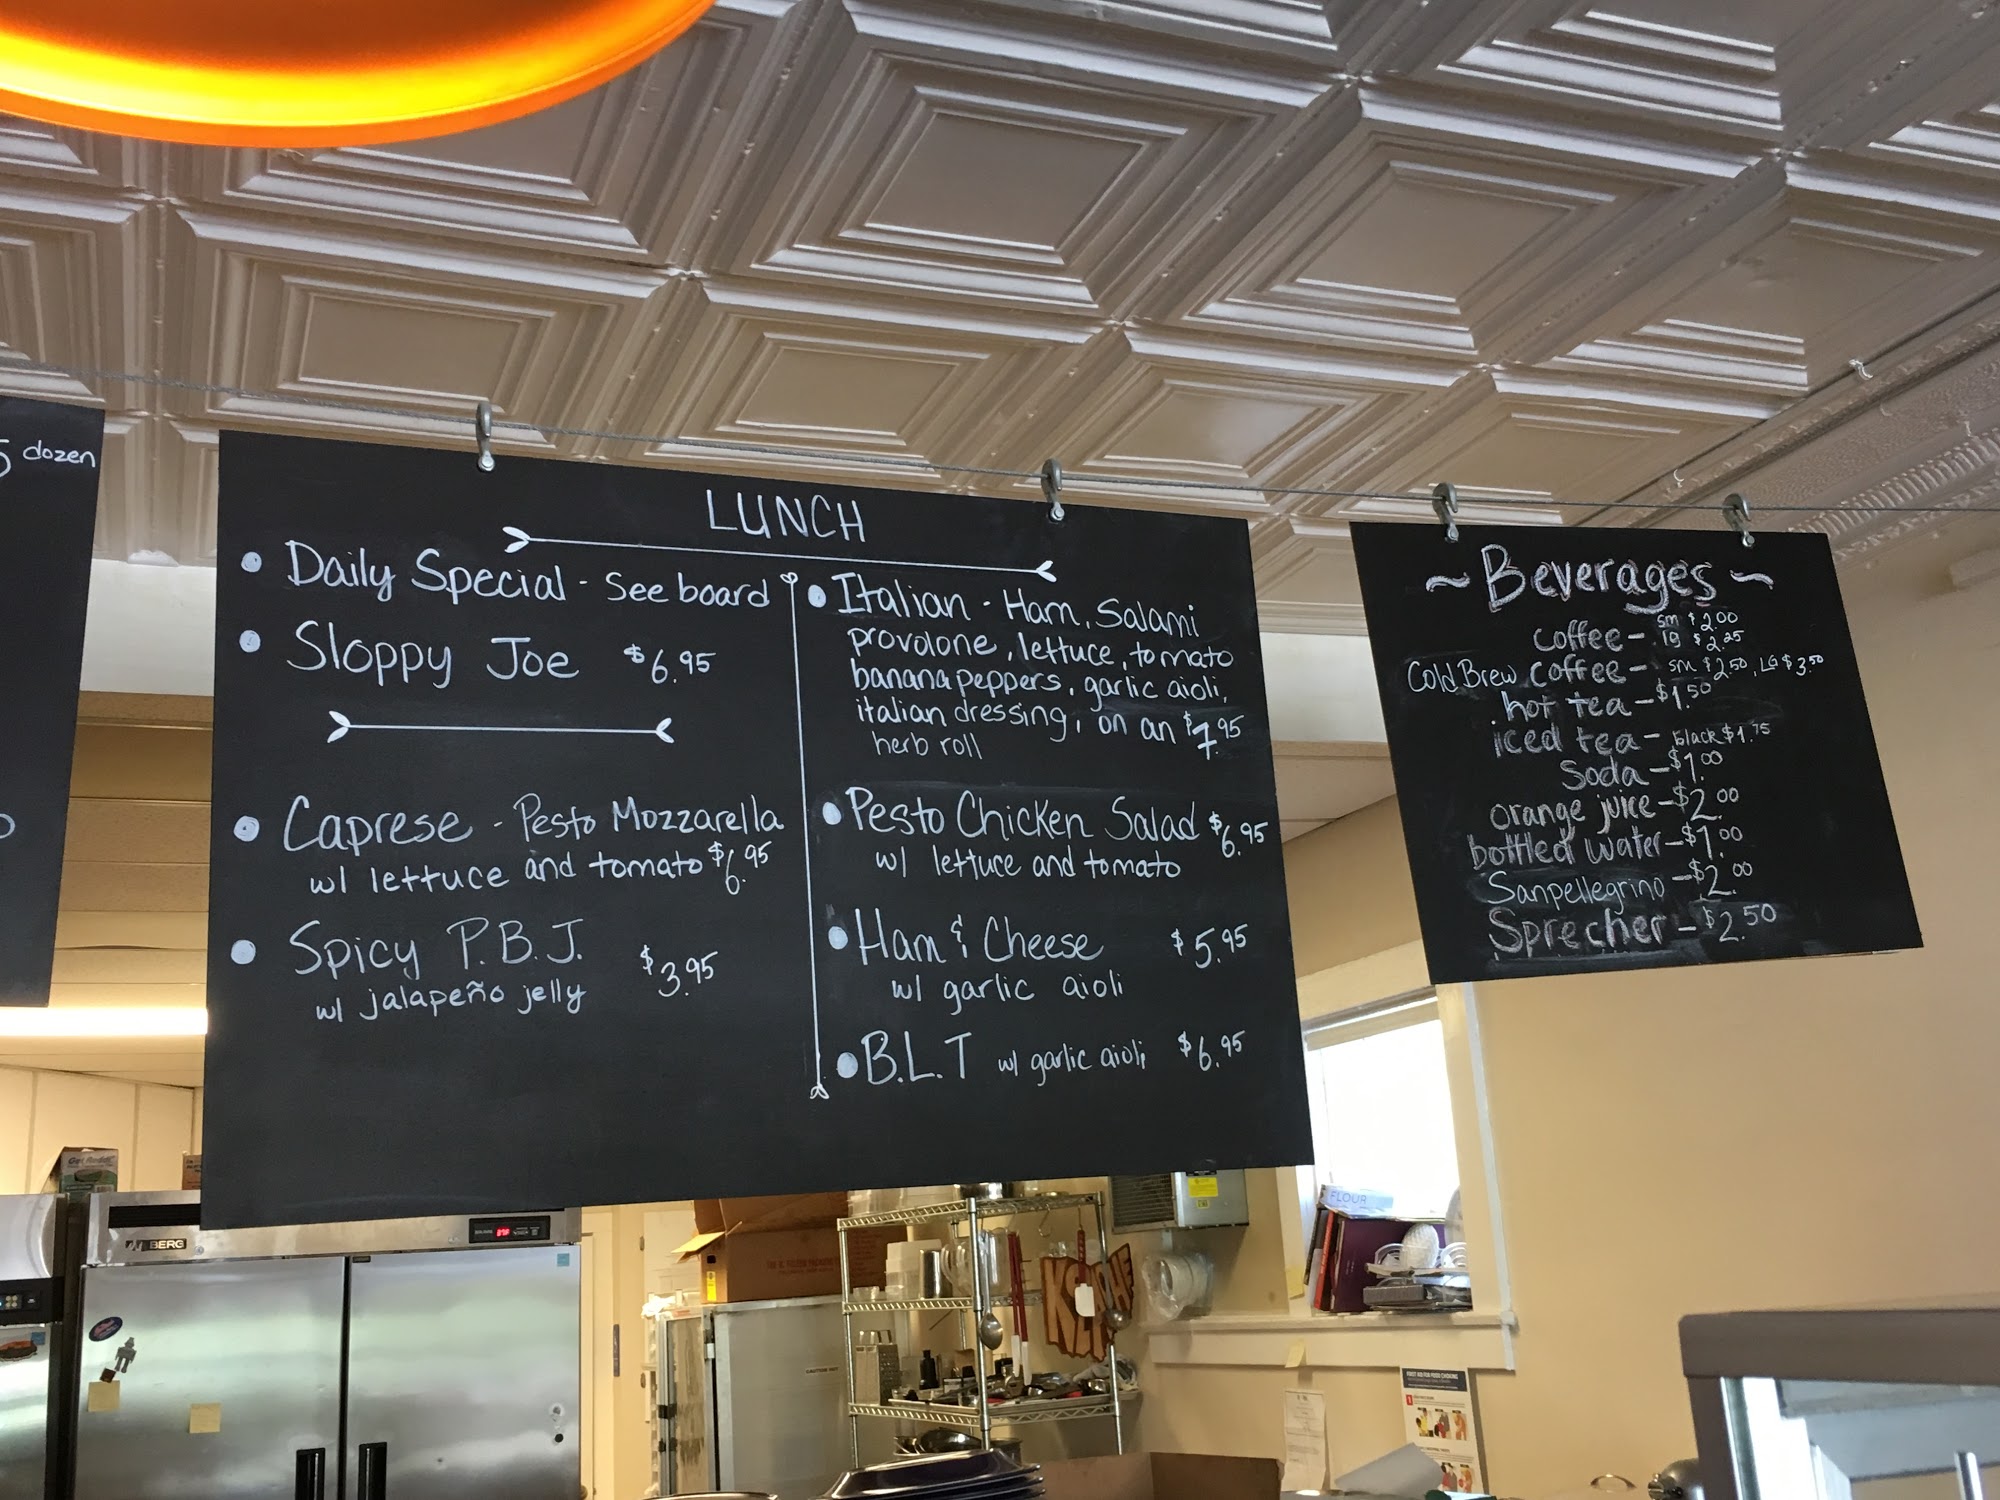 dozen
LUNCH
Daily Special - See board
Sloppy Joe $6.95
Caprese - Pesto Mozzarella
w/ lettuce and tomato $6.95
Spicy P.B.J. $3.95
w/ jalapeño jelly
Italian - Ham, Salami
provolone, lettuce, tomato
banana peppers, garlic aioli,
italian dressing, on an $7.95
herb roll
Pesto Chicken Salad $6.95
w/ lettuce and tomato
Ham & Cheese $5.95
w/ garlic aioli
B.L.T w/ garlic aioli $6.95
~ Beverages ~
coffee - sm $2.00
lg $2.25
Cold Brew coffee - sm $2.50, LG $3.50
hot tea - $1.50
iced tea - black $1.75
Soda - $1.00
orange juice - $2.00
bottled water - $1.00
Sanpellegrino - $2.00
Sprecher - $2.50
FLOUR
FIRST AID FOR FOOD CHOKING